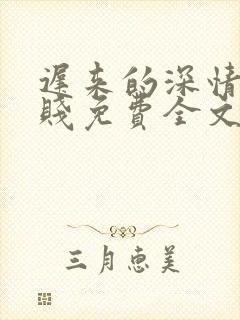 遲来的深情
賤免費全文
三月惠美